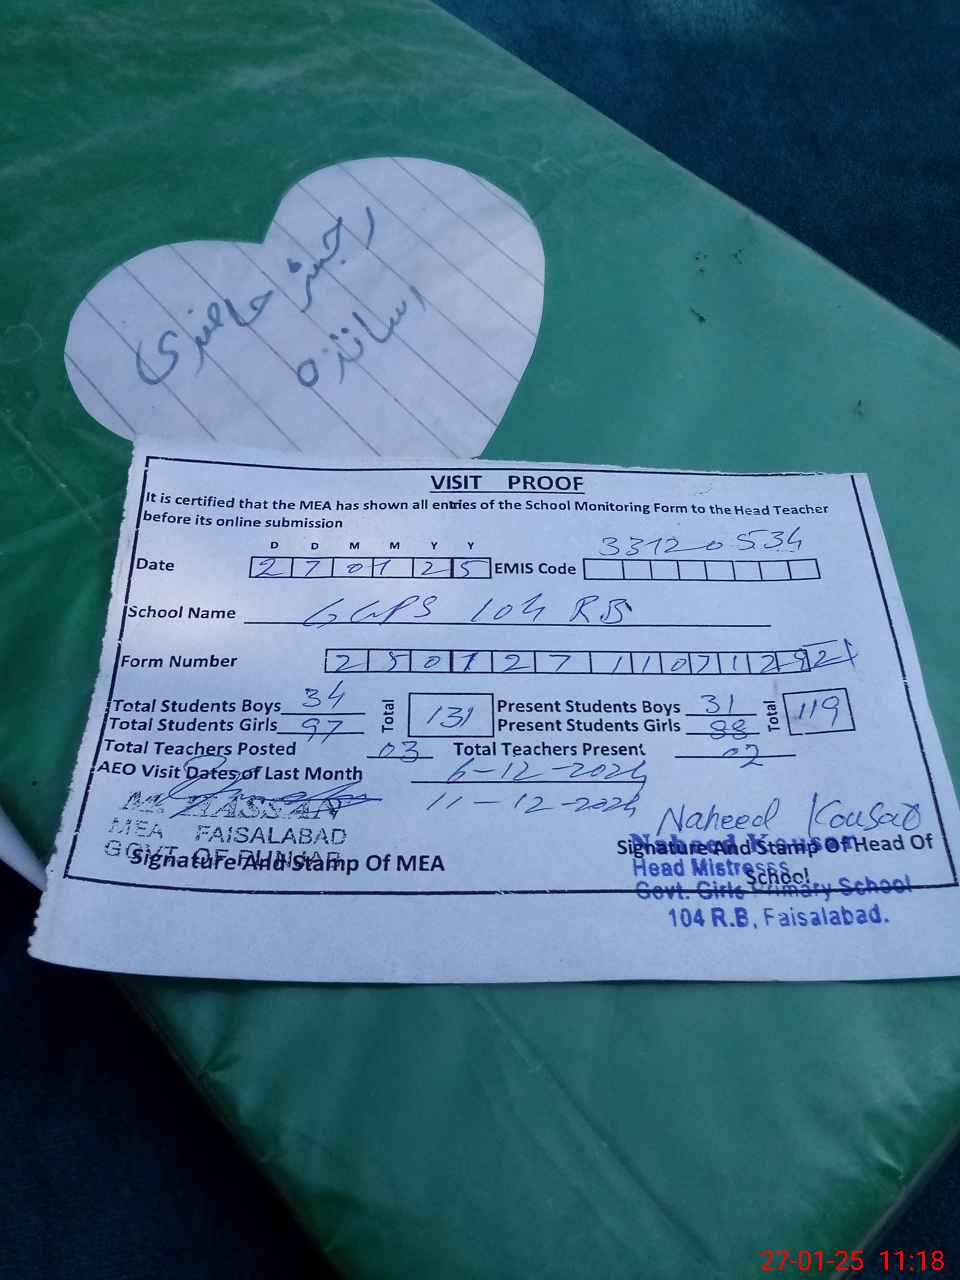 رجسٹر حاضری
اساتذہ
VISIT PROOF
It is certified that the MEA has shown all entries of the School Monitoring Form to the Head Teacher
before its online submission
D D M M Y Y
Date 2 7 0 1 2 5 EMIS Code 33120534
School Name GGPS 104 RB
Form Number
Total Students Boys 34 Total 131 Present Students Boys 31 Total 119
Total Students Girls 97 Present Students Girls 88
Total Teachers Posted 03 Total Teachers Present 02
AEO Visit Dates of Last Month 6-12-2024
11-12-2024
M. HASSAN
MEA FAISALABAD
GOVT. OF PUNJAB
Signature And Stamp Of MEA
Naheed Kousar
Naheed Kousar
Signature And Stamp Of Head Of
School
Head Mistress
Govt. Girls Primary School
104 R.B, Faisalabad.
27-01-25 11:18